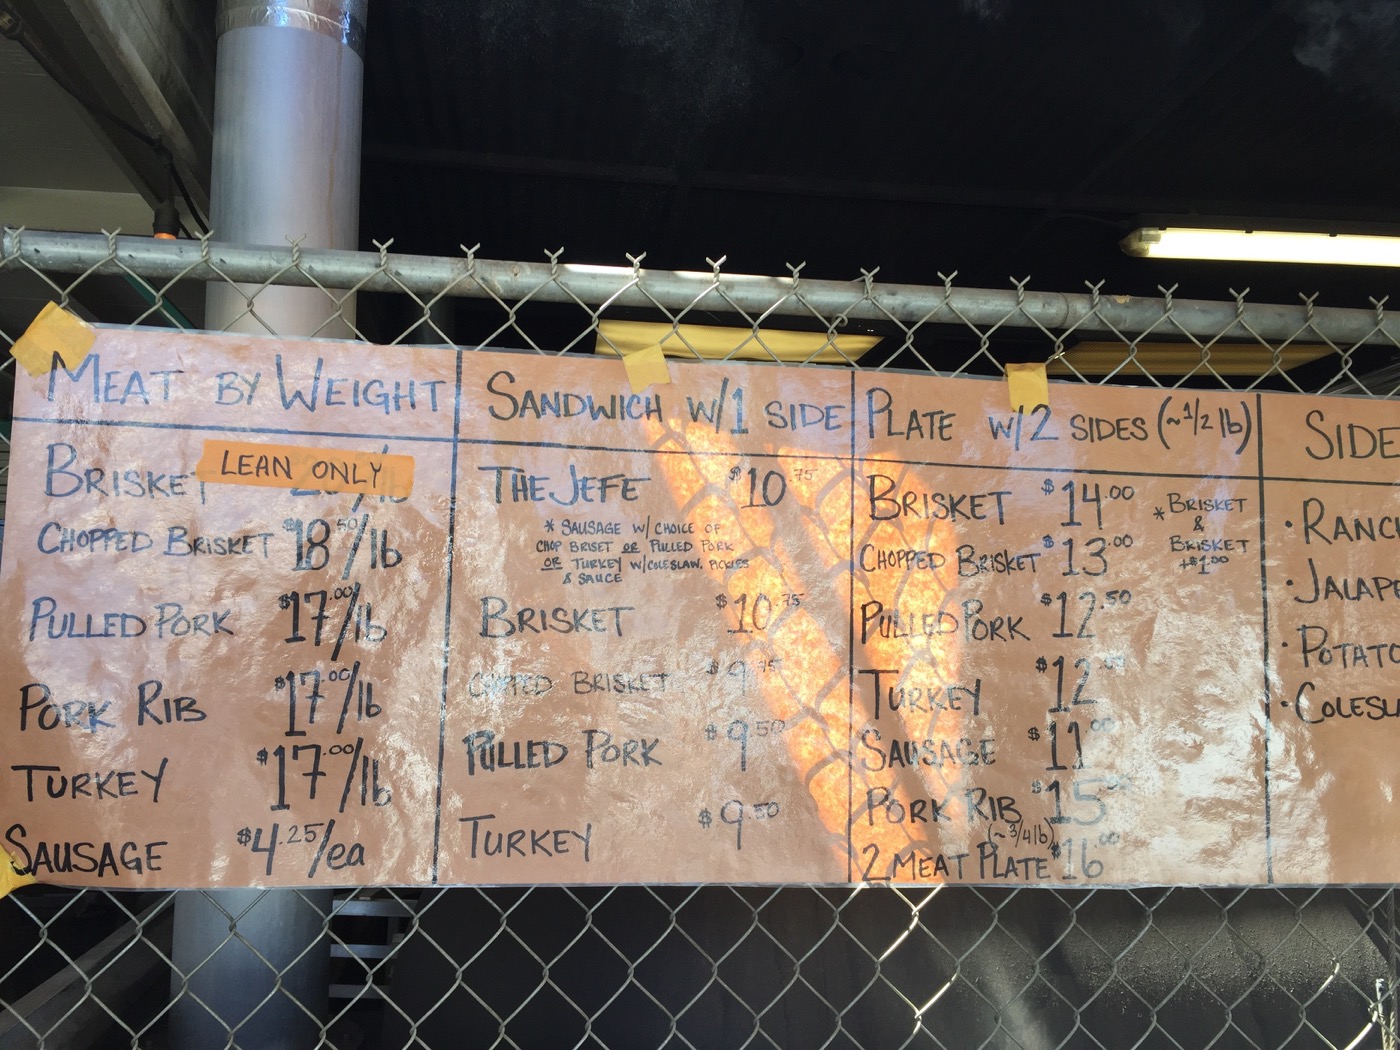 MEAT BY WEIGHT
BRISKET LEAN ONLY
CHOPPED BRISKET $18.50/lb
PULLED PORK $17.00/lb
PORK RIB $17.00/lb
TURKEY $17.00/lb
SAUSAGE $4.25/ea
SANDWICH W/1 SIDE
THE JEFE $10.75
* SAUSAGE W/ CHOICE OF
CHOP BRISET OR PULLED PORK
OR TURKEY W/COLESLAW, PICKLES
& SAUCE
BRISKET $10.75
CHOPPED BRISKET
PULLED PORK $9.50
TURKEY $9.50
PLATE W/2 SIDES (~1/2 lb)
BRISKET $14.00
CHOPPED BRISKET $13.00
* BRISKET
&
BRISKET
+$1.00
PULLED PORK $12.50
TURKEY $12.00
SAUSAGE $11.00
PORK RIB $15
(~3/4 lb)
2 MEAT PLATE $16.00
SIDE
· RANC
· JALAPE
· POTATO
· COLESL